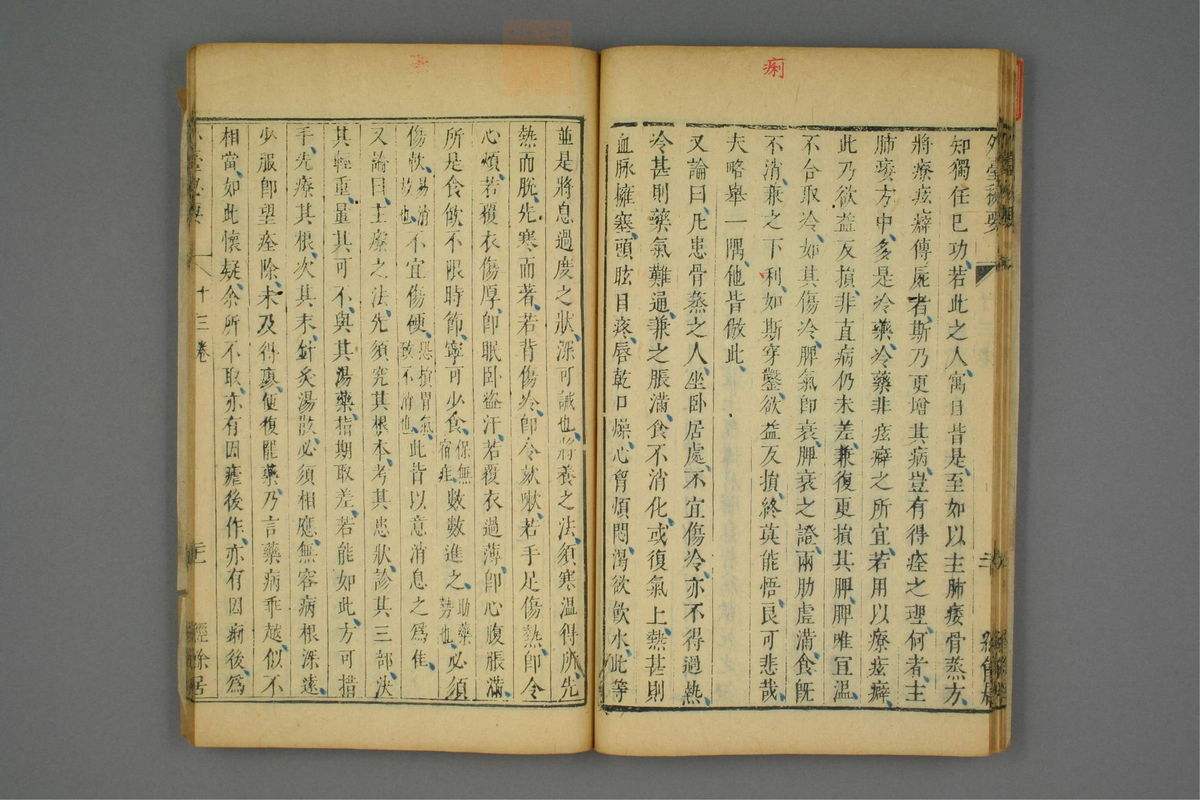 痢
知獨任已功、若此之人、寓目皆是、至如以主肺痿骨蒸方、
將療痃癖傳屍者、斯乃更增其病、豈有得痊之理、何者、主
肺痿方中、多是冷藥、冷藥非痃癖之所宜、若用以療痃癖、
此乃欲益反損、非直病仍未差、兼復更損其脾、脾唯宜溫、
不合取冷、如其傷冷、脾氣卽衰、脾衰之證、兩肋虛滿、食旣
不消、兼之下利、如斯穿鑿、欲益反損、終莫能悟、良可悲哉、
夫略舉一隅、他皆倣此、
又論曰、凡患骨蒸之人、坐卧居處、不宜傷冷、亦不得過熱、
冷甚則藥氣難通、兼之脹滿、食不消化、或復氣上、熱甚則
血脉擁塞、頭眩目疼、唇乾口燥、心胷煩悶、渴欲飮水、此等
並是將息過度之狀、深可誡也、將養之法、須寒溫得所、先
熱而脫、先寒而著、若背傷冷、卽令欬嗽、若手足傷熱、卽令
心煩、若覆衣傷厚、卽眠卧盜汗、若覆衣過薄、卽心腹脹滿、
所是食飮、不限時節、寧可少食、保無宿疰、數數進之、助藥勢也、必須
傷軟、易消故也、不宜傷硬、恐損胃氣、致不消也、此皆以意消息之爲佳
又論曰、主療之法、先須究其根本、考其患狀、診其三部、決
其輕重、量其可不、與其湯藥、指期取差、若能如此、方可措
手、先療其根、次其末、針灸湯散、必須相應、無容病根深遠、
少服卽望痊除、未及得惠、便復罷藥、乃言藥病乖越、似不
相當、如此懷疑、余所不取、亦有因瘧後作、亦有因痢後爲
十三卷
二
經餘居